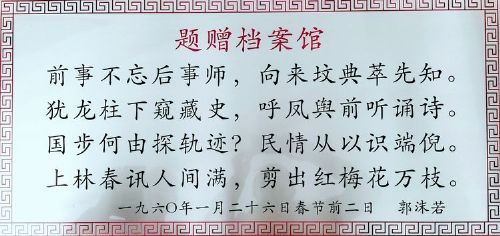 题赠档案馆
前事不忘后事师，向来坟典萃先知。
犹龙柱下窥藏史，呼凤舆前听诵诗。
国步何由探轨迹？民情从以识端倪。
上林春讯人间满，剪出红梅花万枝。
一九六〇年一月二十六日春节前二日 郭沫若